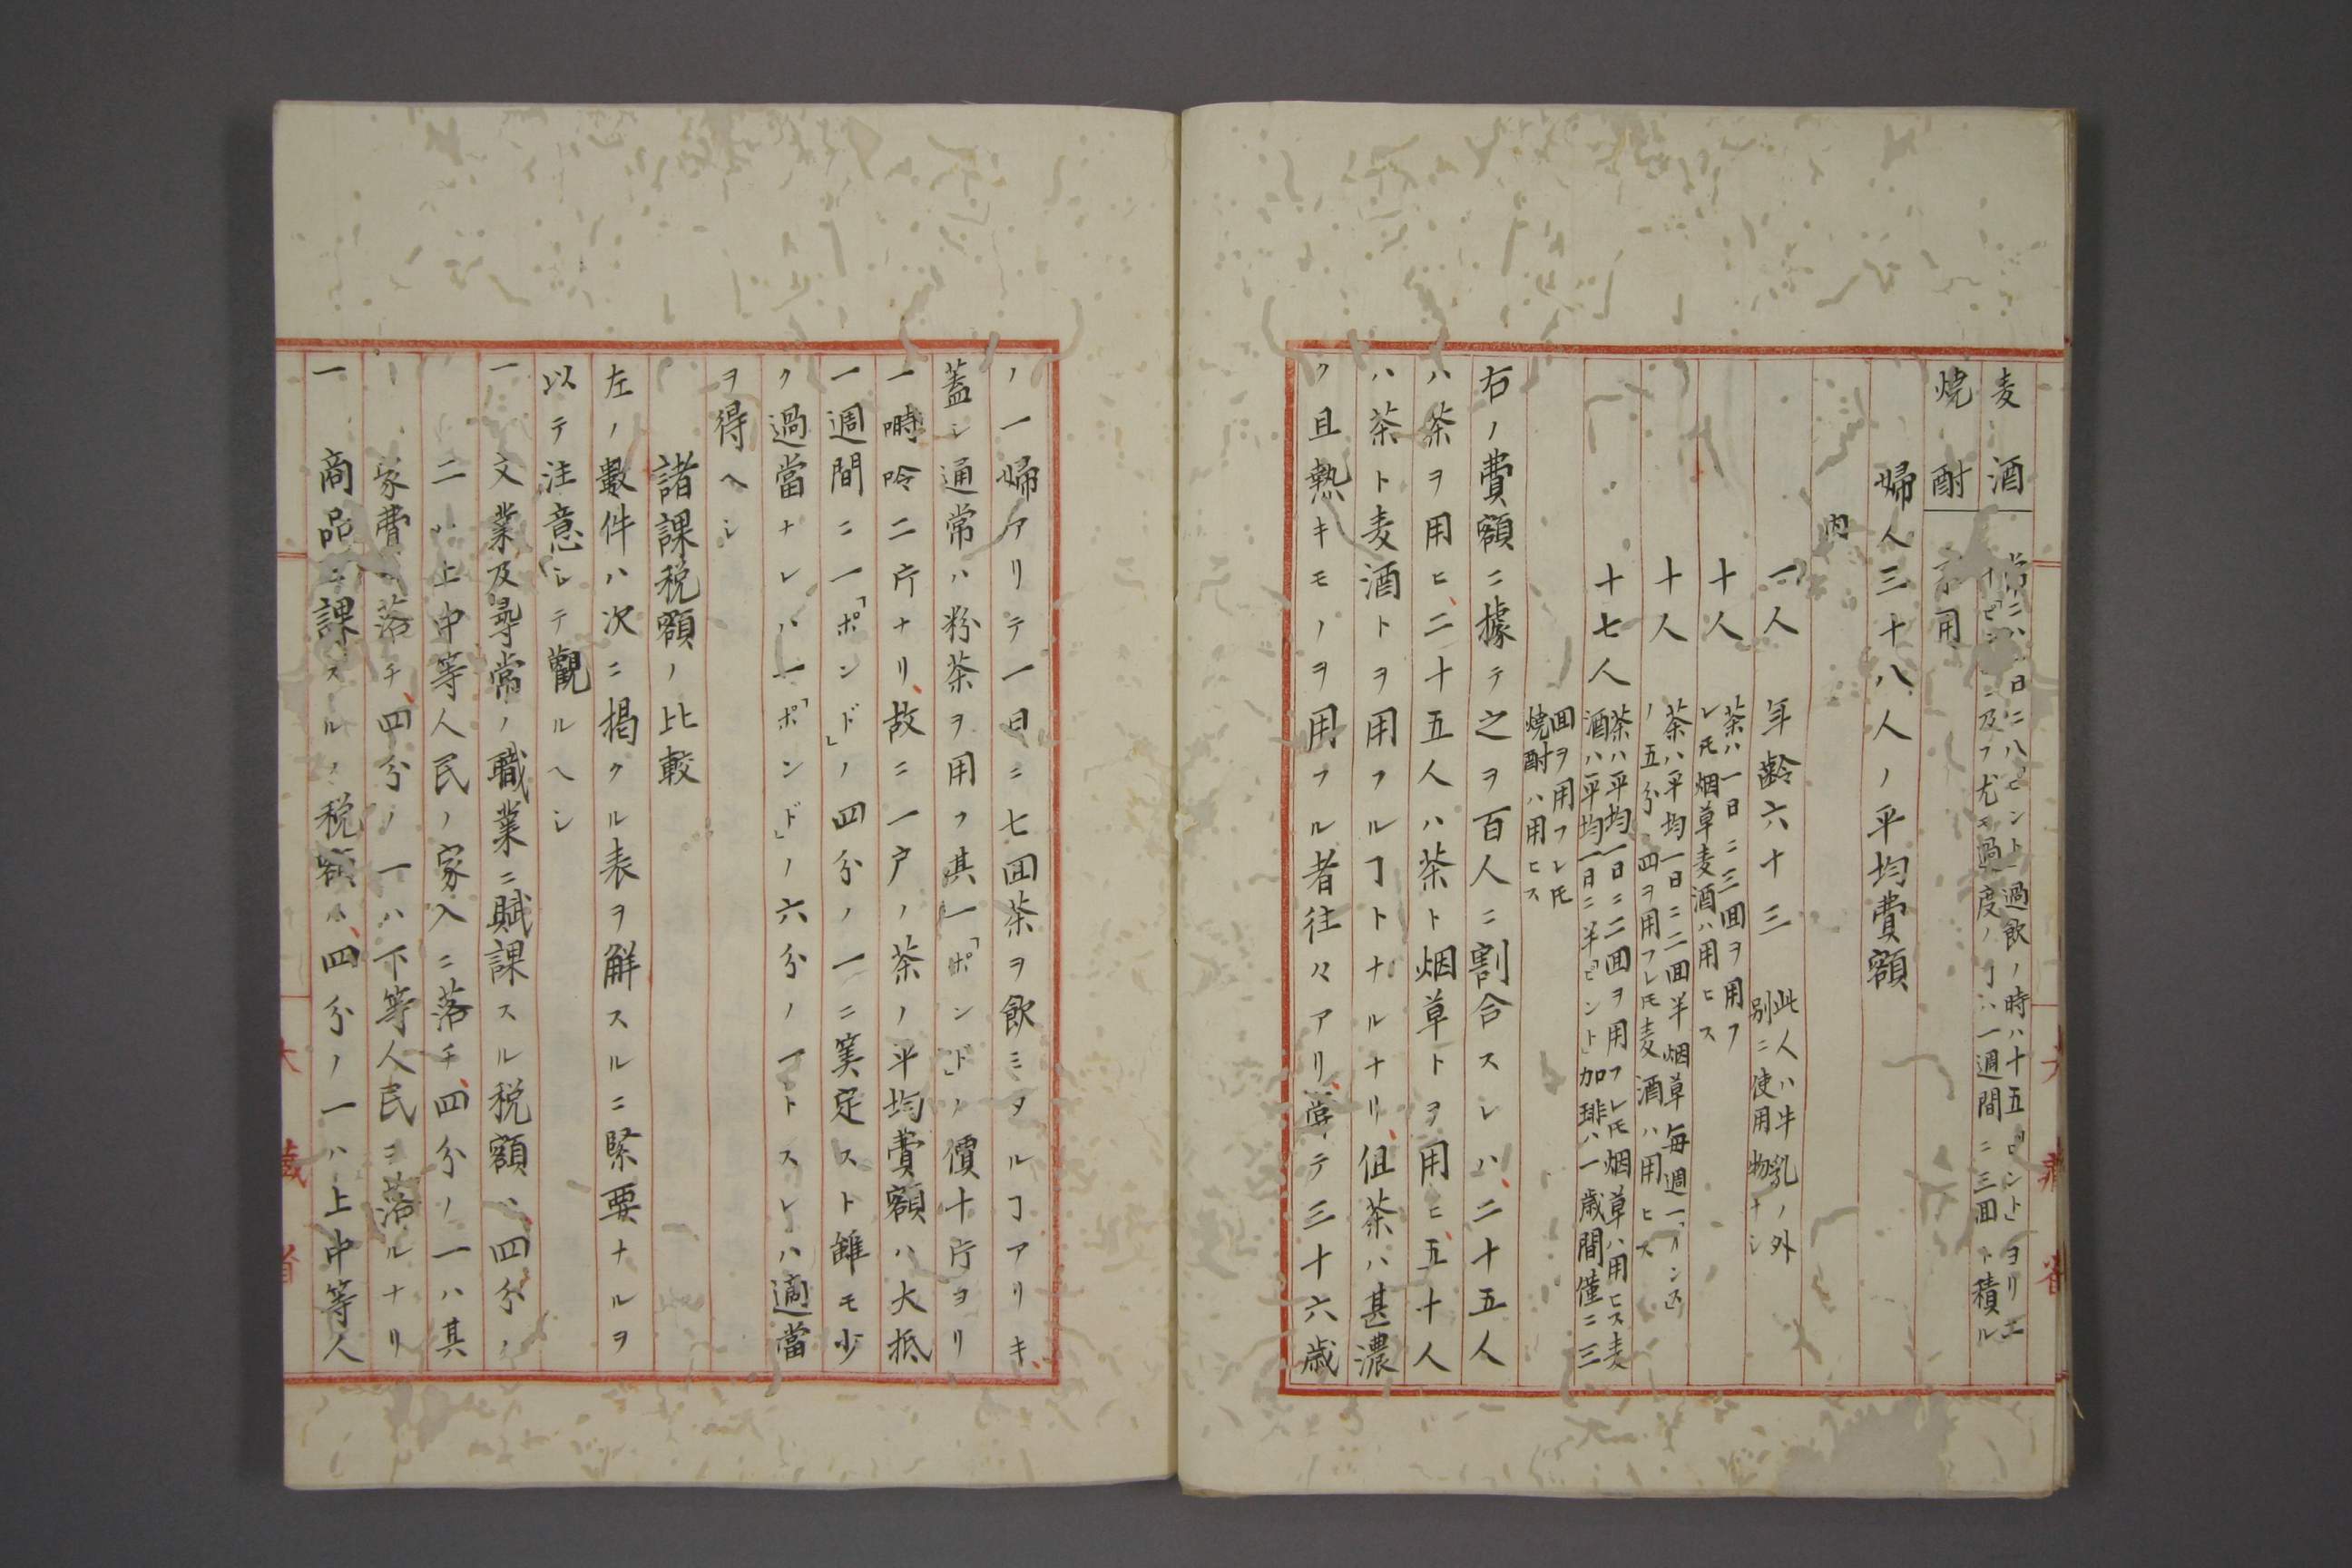 麦酒 常ニハ一日ニ八「ピント」過飲ノ時ハ十五「ピント」ヨリ二
十「ピント」ニ及フ尤モ過度ノヿハ一週間ニ三回ト積ル
焼酎 不用
婦人三十八人ノ平均費額
内
一人 年齢六十三 此人ハ牛乳ノ外
別ニ使用物ナシ
十人 茶ハ一日ニ三回ヲ用フ
レ𪜈烟草麦酒ハ用ヒス
十人 茶ハ平均一日ニ二回半烟草毎週一「ヲンス」
ノ五分ノ四ヲ用フレ𪜈麦酒ハ用ヒス
十七人 茶ハ平均一日ニ二回ヲ用フレ𪜈烟草ハ用ヒス麦
酒ハ平均一日ニ半「ピント」加琲ハ一歳間僅ニ三
回ヲ用フレ𪜈
焼酎ハ用ヒス
右ノ費額ニ據テ之ヲ百人ニ割合スレハ、二十五人
ハ茶ヲ用ヒ、二十五人ハ茶ト烟草トヲ用ヒ、五十人
ハ茶ト麦酒トヲ用フルヿトナルナリ、但茶ハ甚濃
ク且熱キモノヲ用フル者往々アリ、嘗テ三十六歳
ノ一婦アリテ一日ニ七回茶ヲ飲ミタルヿアリキ、
蓋シ通常ハ粉茶ヲ用フ其一「ポンド」ノ價十片ヨリ
一嘶呤二片ナリ、故ニ一戸ノ茶ノ平均費額ハ大抵
一週間ニ一「ポンド」ノ四分ノ一ニ筭定スト雖モ少
ク過當ナレハ一「ポンド」ノ六分ノ一トスレハ適當
ヲ得ヘシ
諸課税額ノ比較
左ノ數件ハ次ニ掲クル表ヲ解スルニ緊要ナルヲ
以テ注意シテ觀ルヘシ
一 文業及尋常ノ職業ニ賦課スル税額ハ、四分ノ
二ハ上中等人民ノ家入ニ落チ、四分ノ一ハ其
家費ニ落チ、四分ノ一ハ下等人民ニ落ルナリ
一 商品ニ課スルノ税額ハ、四分ノ一ハ上中等人
大藏省